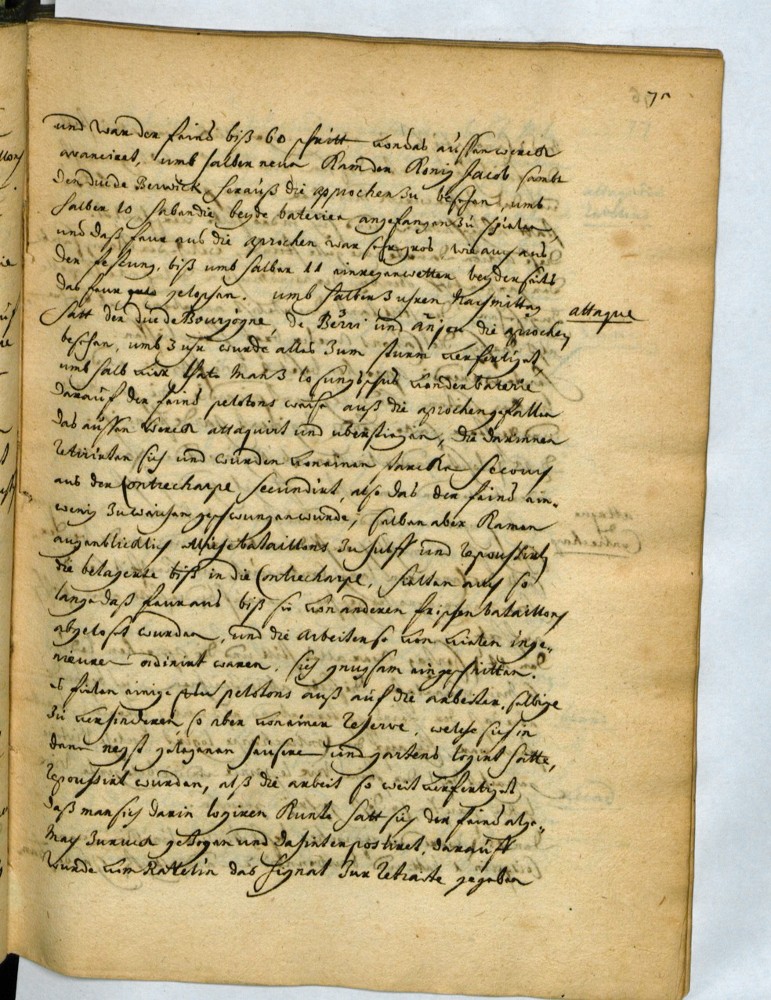 und war der feind biß 60 schritt von das aussen werck
avanciret, umb halber neun kam der König Jacob sambt
den duc de Berwick herauß die approchen zu besehen, umb
halber 10 haben die beyde baterien angefangen zu spielen,
und daß feur aus die aprochen war sehr gros, wie auch aus
der festung, biß umb halber 11 ein regenwetter beyderseits
das feur geloschen. umb halber 3 uhren Nachmittag
hatt der duc de Bourgogne, de Berri und Anjou die aprochen
attaque
besehen, umb 3 uhr wurde alles zum sturm verfertiget,
umb halb vier thate man 3 losungschus von der baterie
darauf der feind pelotons weise auß die aprochen gefallen
das aussen werck attaquirt und überstiegen, die darinnen
retirirten sich und wurden von einen starcken secours
aus der Contrecharpe secundirt, also das der feind ein
wenig zu weichen gezwungen wurde, selben aber kamen
augenblicklich bataillons zu hilff und repoussirten
die belagerte biß in die Contrecharpe, hielten auch so
lange daß feur aus biß sie von anderen frischen bataillons
abgelöset wurden, und die arbeiter so von vielen inge-
nieuren ordinirt waren, sich gnugsam eingeschnitten.
es fielen einige pelotons auß auf die arbeiter, selbige
zu verhinderen, so aber von einer reserve, welche sich in
denen negst gelegenen heusern und gartens logirt hatte,
repoussirt wurden, alß die arbeit so weit verfertiget
daß man sich darin logiren kunte hatt sich der feind alge-
mach zuruck gezogen und dahinter postiret, darauff
wurde vom Ravelin das signal zur retraite gegeben